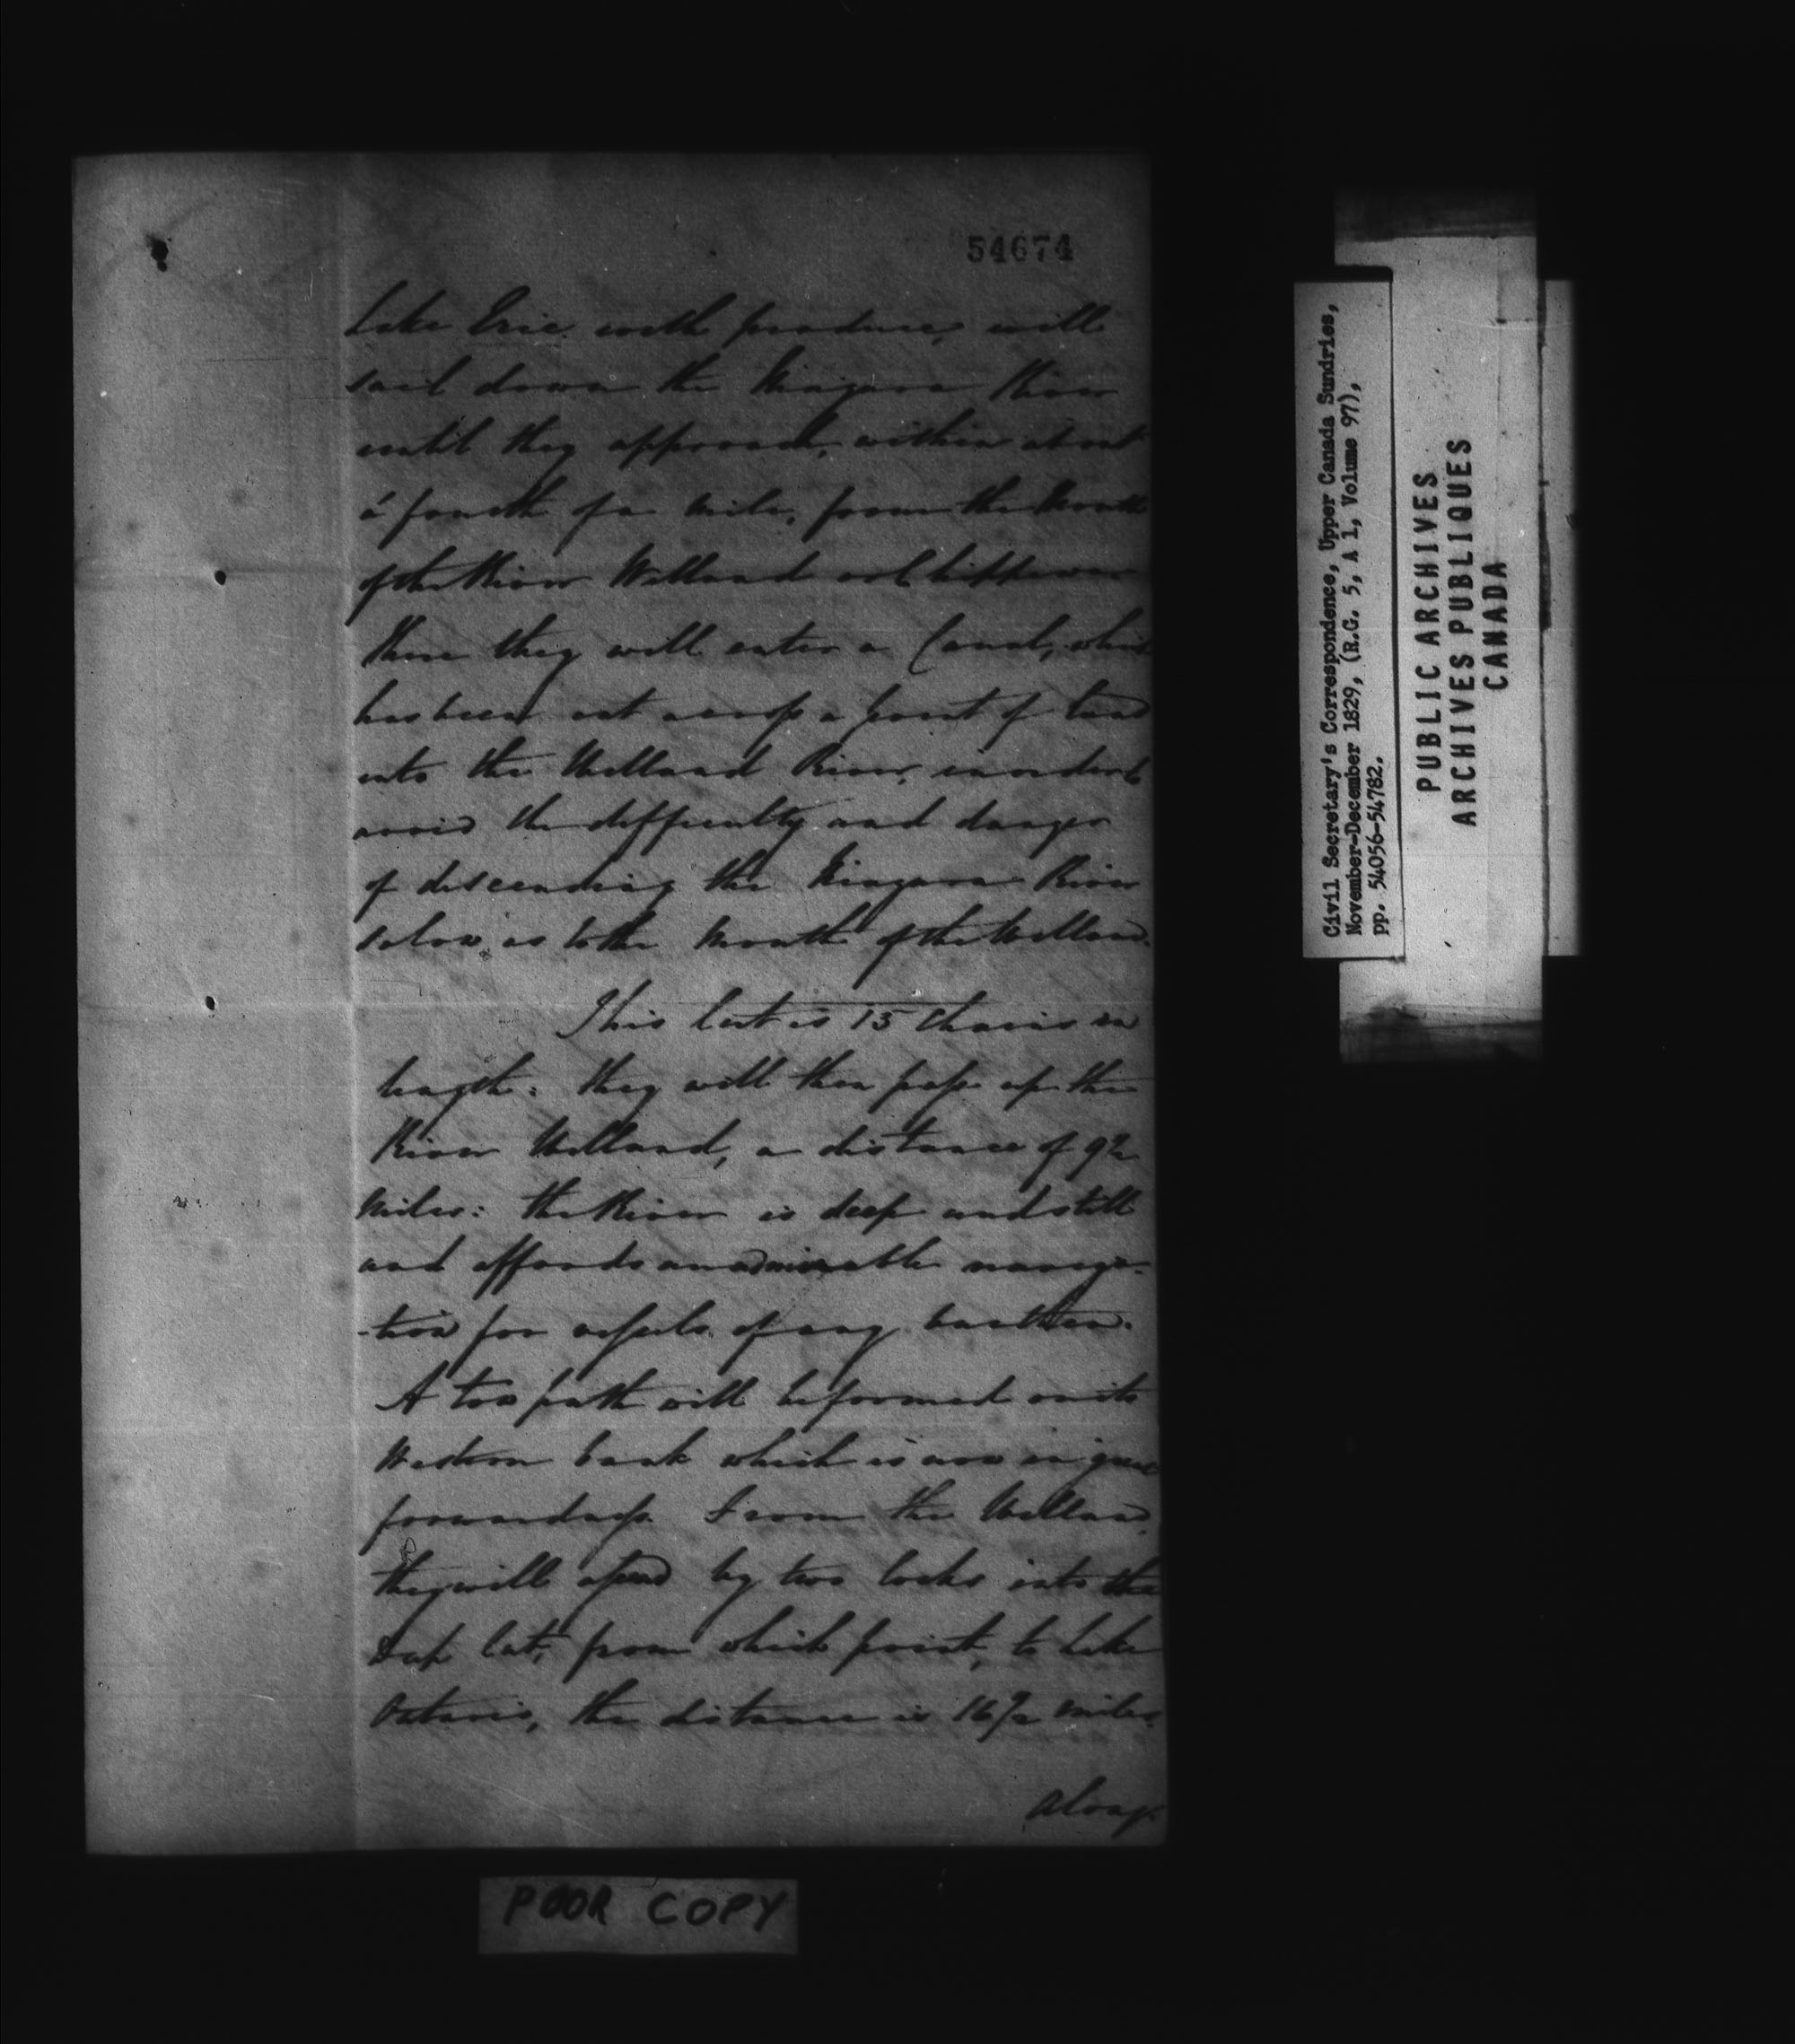 54674
Lake Erie with produce, will
sail down the Niagara River
until they approach, within about
a fourth of a mile, from the Mouth
of the River Welland or Chippewa
there they will enter a Canal, which
has been cut across a point of land
into the Welland River, in order to
avoid the difficulty and danger
of descending the Niagara River
so low as to the Mouth of the Welland.
This cut is 15 Chains in
length: they will then pass up the
River Welland, a distance of 9½
Miles: the River is deep and still
and affords an admirable naviga-
-tion for vessels of any burthen.
A tow path will be formed on its
Western bank which is now in great
forwardness. From the Welland,
they will ascend by two locks into the
Deep Cut, from which point, to Lake
Ontario, the distance is 16½ miles.
along
POOR COPY
Civil Secretary's Correspondence, Upper Canada Sundries,
November-December 1829, (R.G. 5, A 1, Volume 97),
pp. 54056-54782.
PUBLIC ARCHIVES
ARCHIVES PUBLIQUES
CANADA